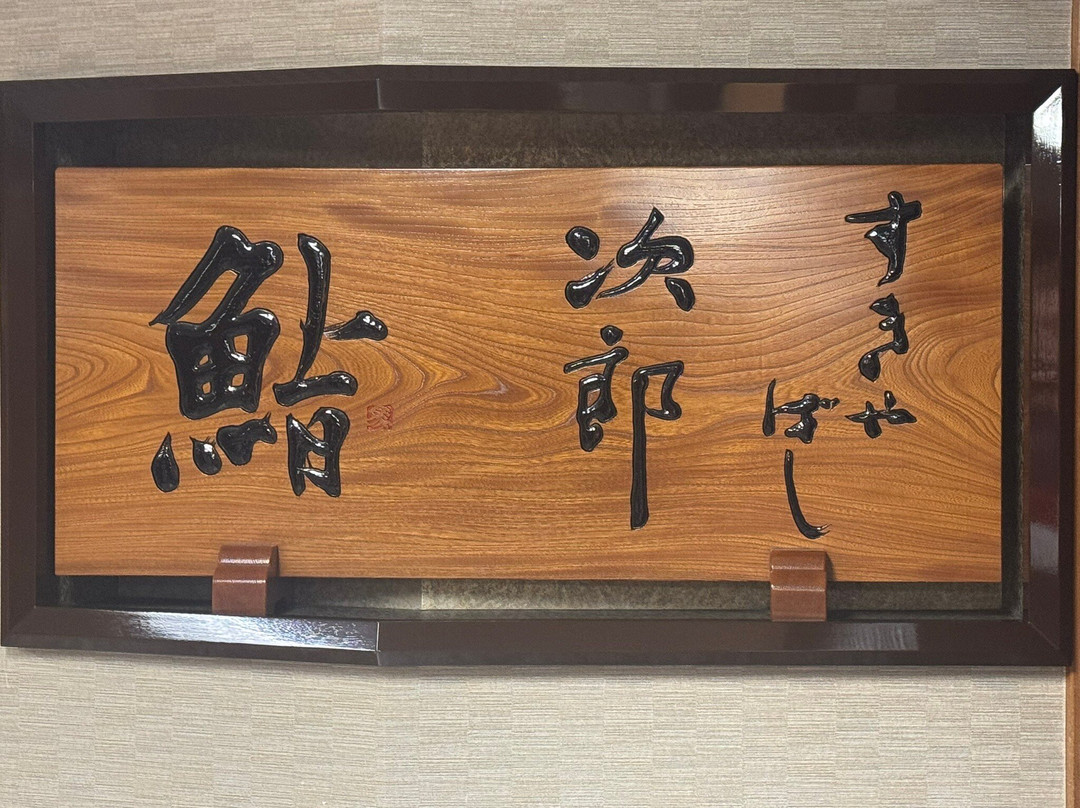 すきや
ばし
次郎
鮨